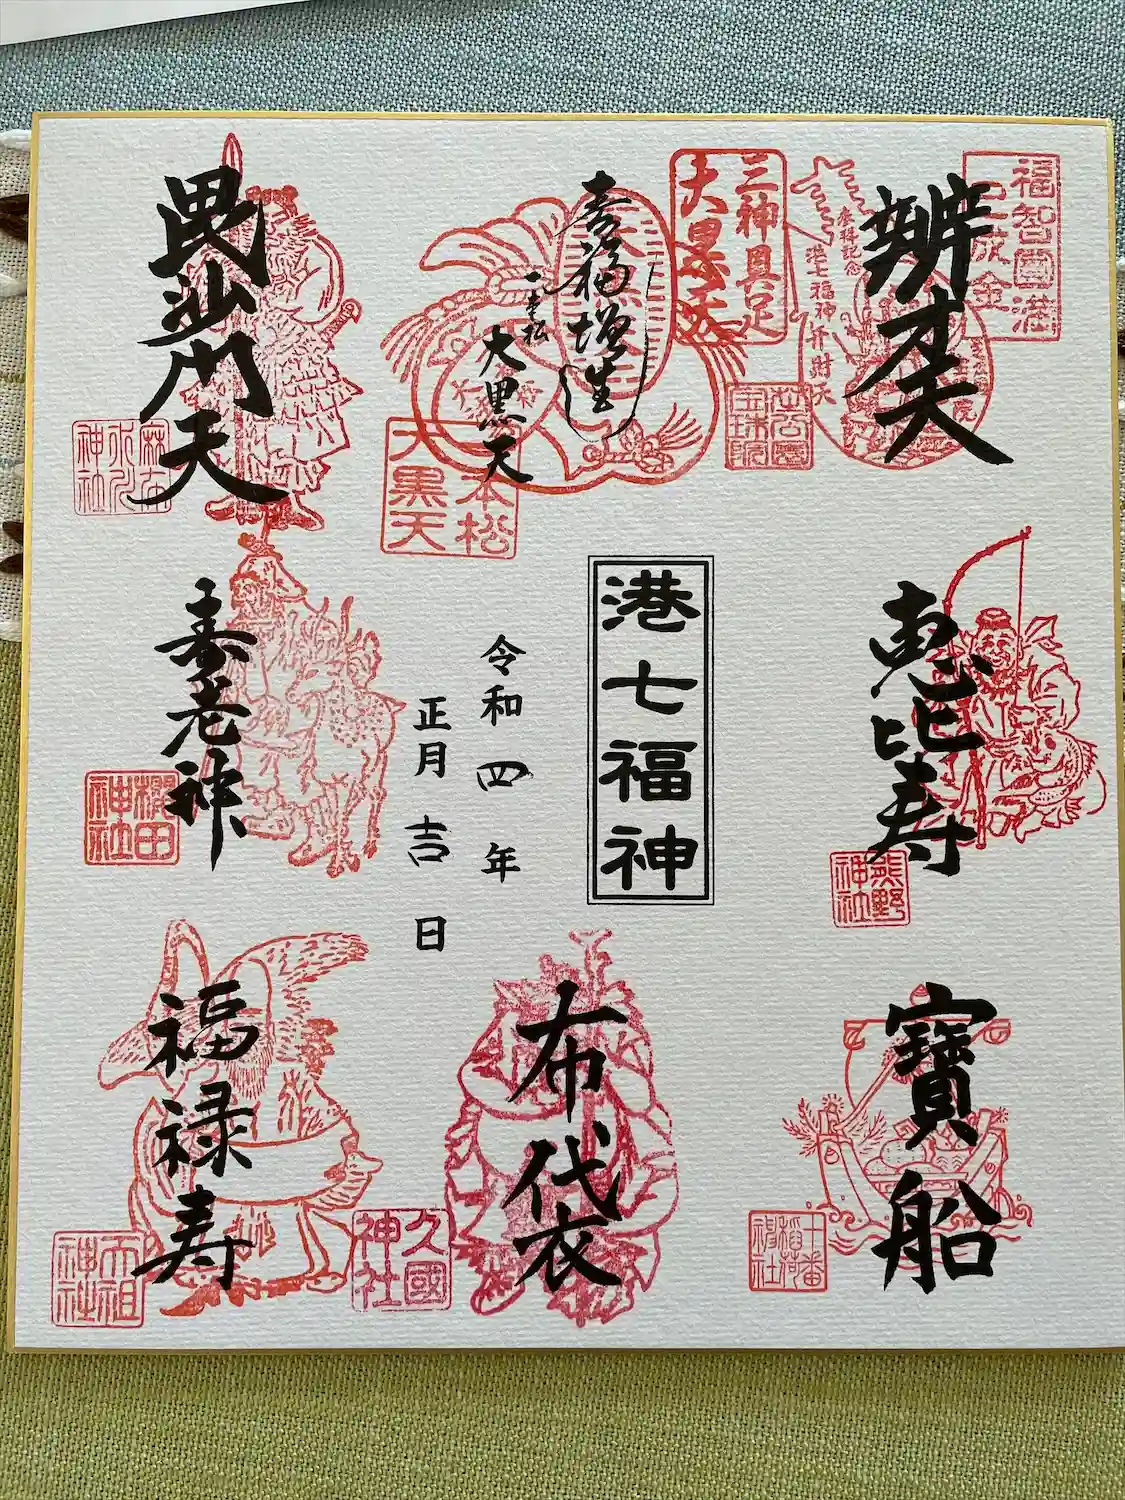 福智円満
辨才天
参拝記念
港七福神弁財天
三神具足
大黒天
寿福増生
一本松
大黒天
一本松
大黒天
毘沙門天
麻布
氷川
神社
恵比寿
熊野
神社
港七福神
令和四年
正月吉日
寿老神
櫻田
神社
寳船
十番
稲荷
神社
布袋
久國
神社
福禄寿
天祖
神社